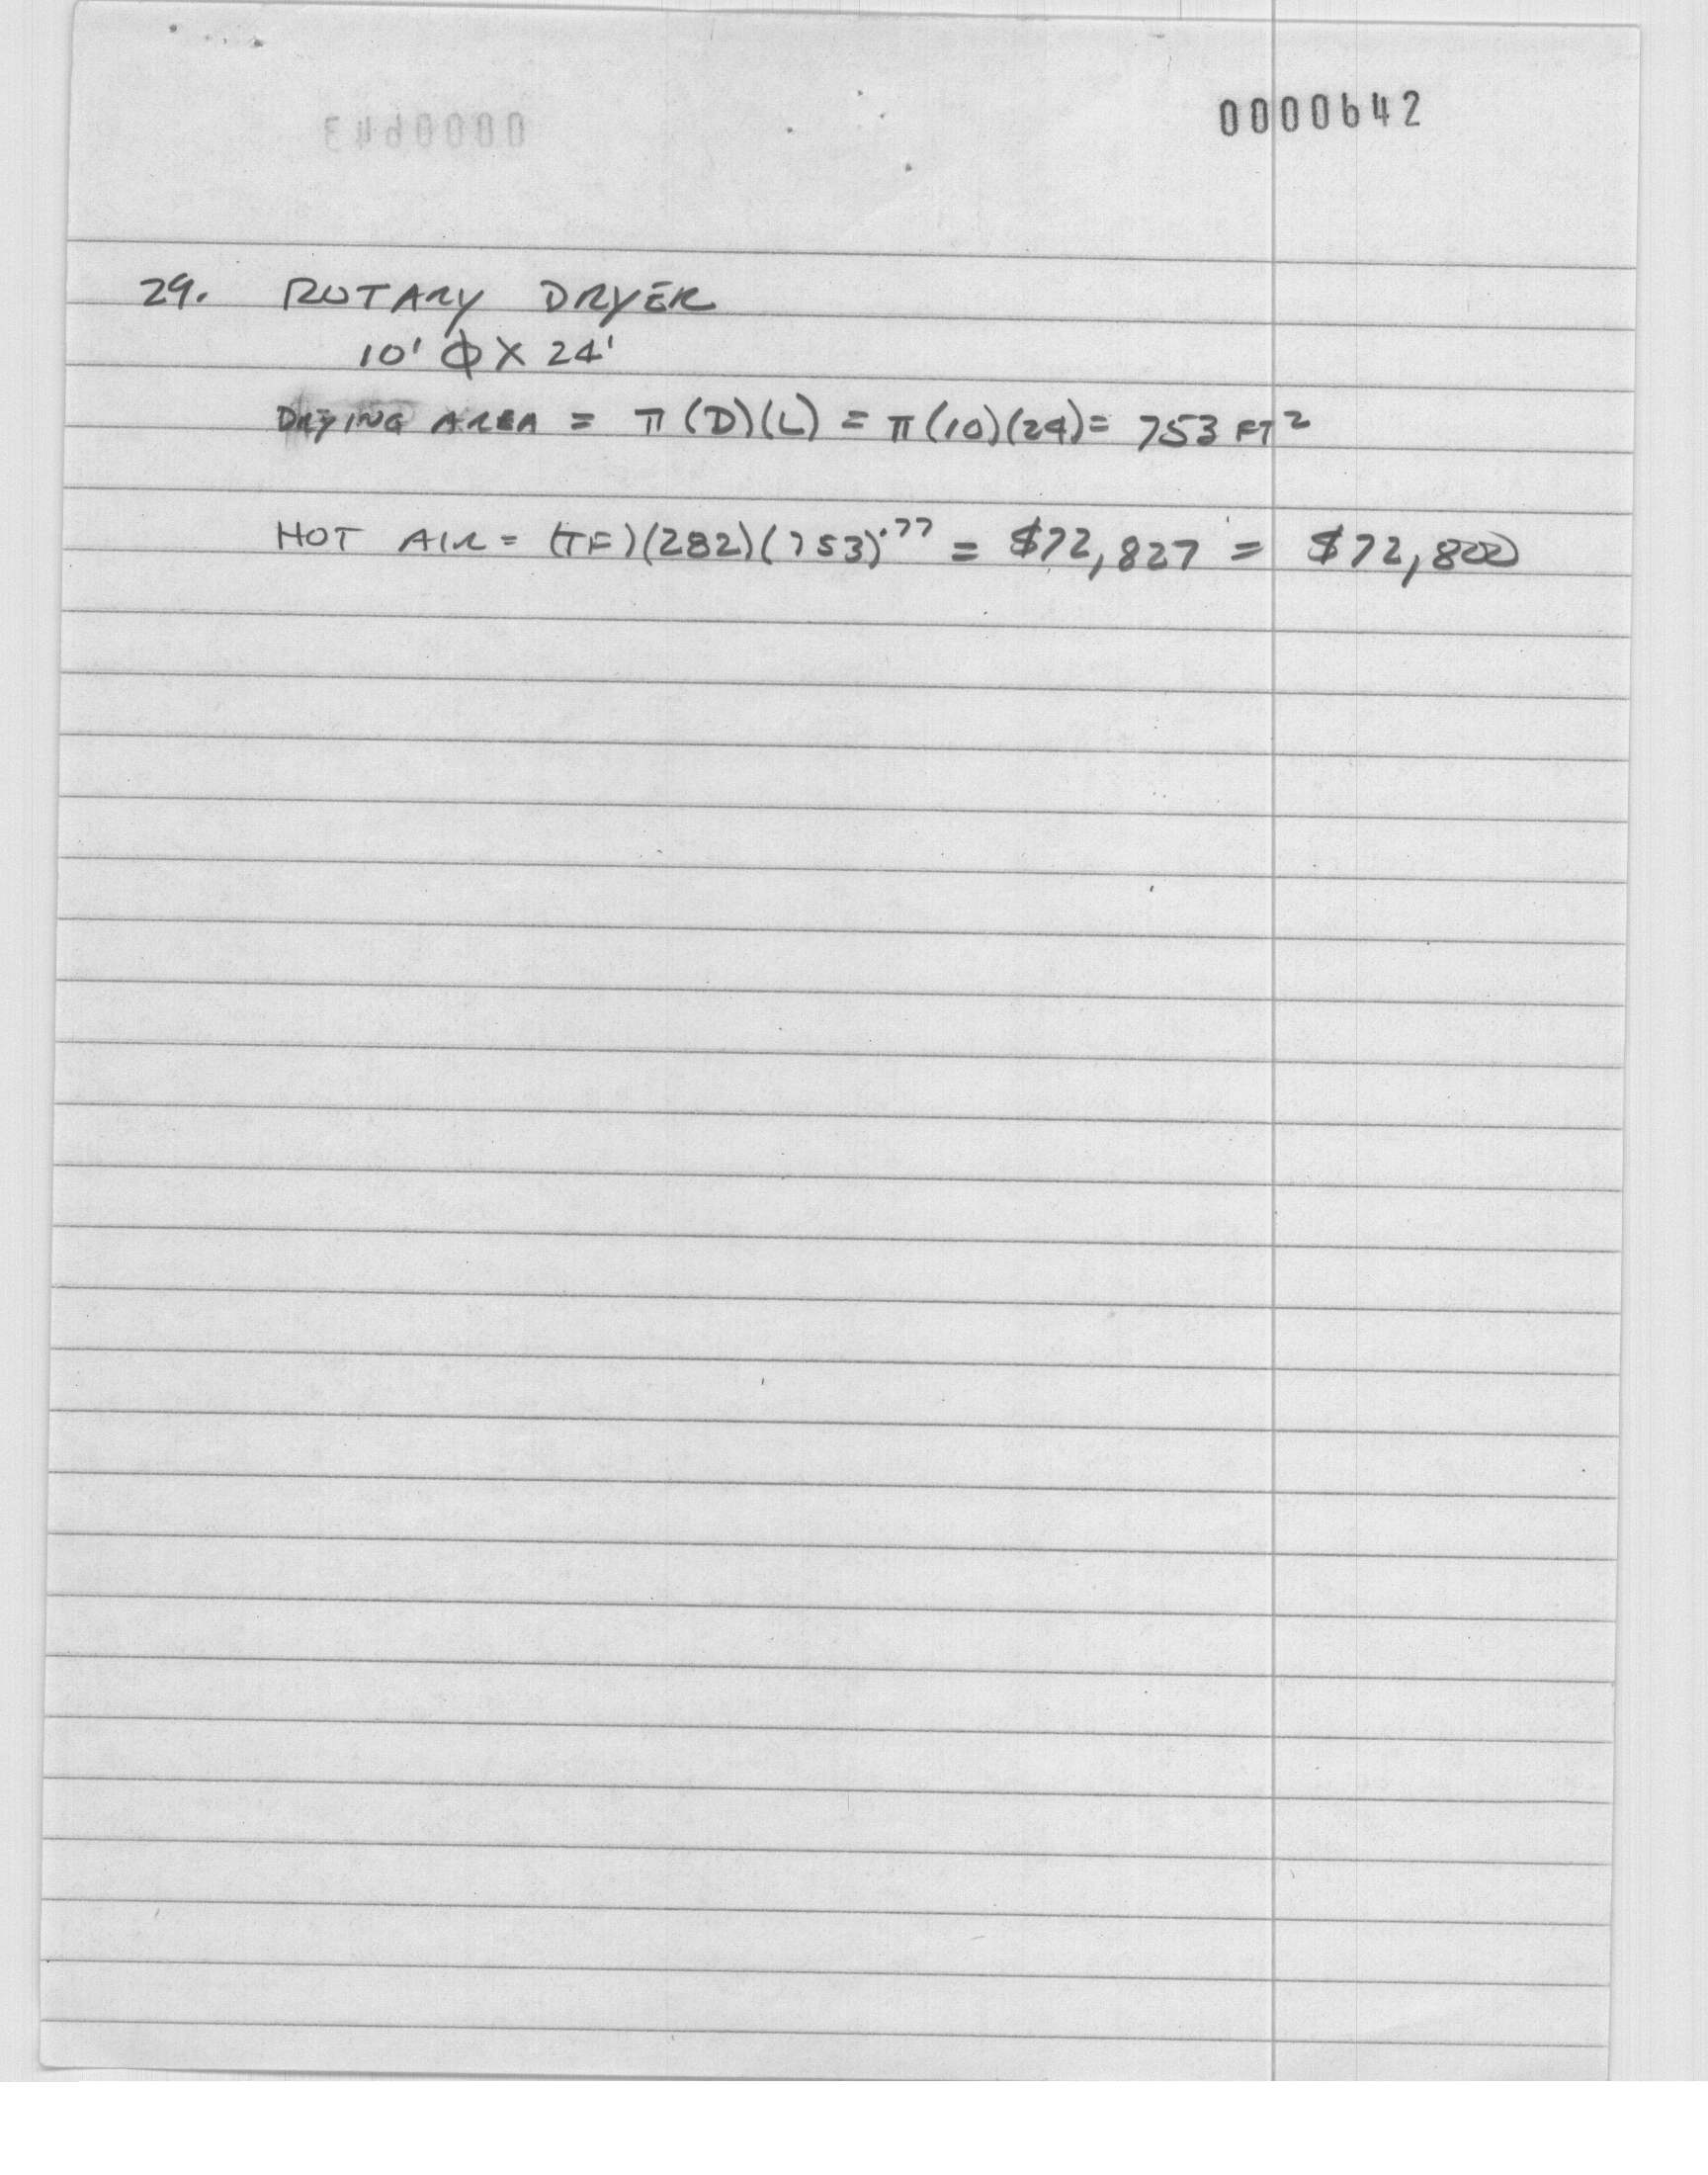 0000642
0000643
29. ROTARY DRYER
10' Φ X 24'
DRYING AREA = π (D)(L) = π (10)(24) = 753 FT²
HOT AIR = (TF)(282)(753)^.77 = $72,827 = $72,800